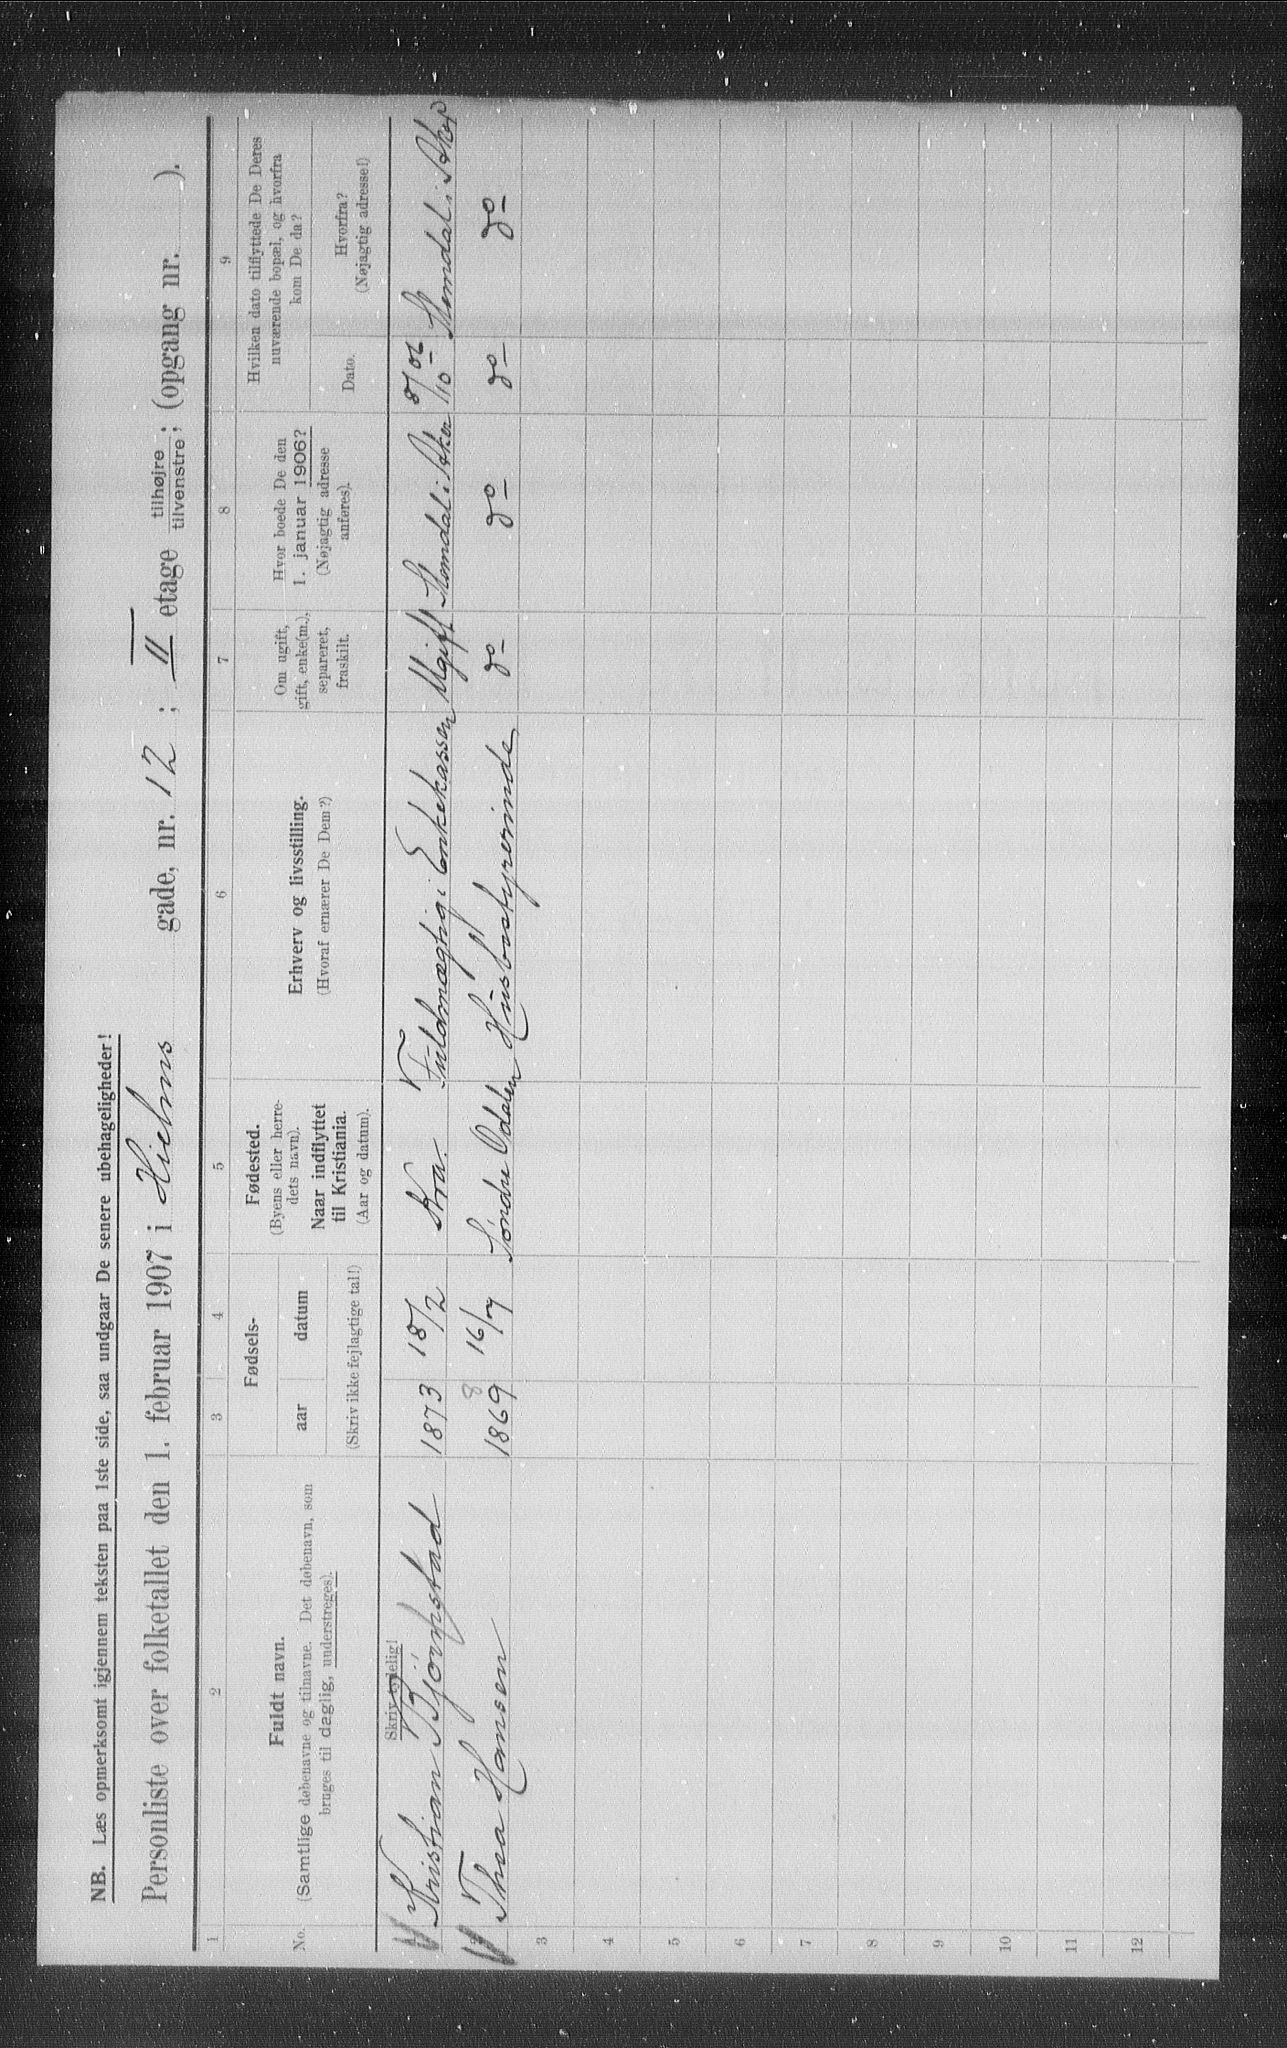 NB. Læs opmerksomt igjennem teksten paa 1ste side, saa undgaar De senere ubehageligheder!
Personliste over folketallet den 1. februar 1907 i Hielms gade, nr. 12 ; II etage tilhøjre / tilvenstre; (opgang nr. ).
1 2 3 4 5 6 7 8 9
No.
Fuldt navn.
(Samtlige døbenavne og tilnavne. Det døbenavn, som
bruges til daglig, understreges).
Fødsels-
aar datum
(Skriv ikke fejlagtige tal!)
Fødested.
(Byens eller herre-
dets navn).
Naar indflyttet
til Kristiania.
(Aar og datum).
Erhverv og livsstilling.
(Hvoraf ernærer De Dem?)
Om ugift,
gift, enke(m.),
separeret,
fraskilt.
Hvor boede De den
1. januar 1906?
(Nøjagtig adresse
anføres).
Hvilken dato tilflyttede De Deres
nuværende bopæl, og hvorfra
kom De da?
Dato.
Hvorfra?
(Nøjagtig adresse!)
Skriv tydelig!
Kristian Bjørnstad 1873 18/2 Kra. Fuldmægtig i Enkekassen Ugift Slemdal i Aker 8/10 06 Slemdal i Aker
2 Thea Hansen 1869 8 16/7 Söndre Odalen Husbestyrerinde do do do do
3
4
5
6
7
8
9
10
11
12